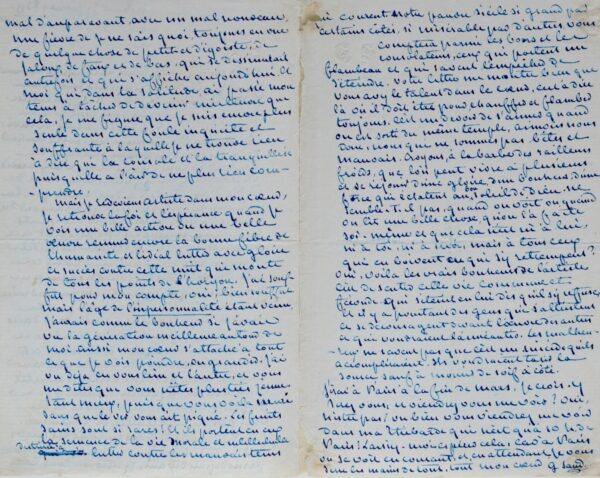 mal d'auparavant, avec un mal nouveau,
une fièvre de je ne sais quoi toujours en vue
de quelque chose de petit et d'égoïste, de
jaloux, de faux et de bas, qui se dissimulait
autrefois et qui s'affiche aujourd'hui. et
moi qui dans la solitude, ai passé mon
tems à tâcher de devenir meilleure que
cela, je me figure que je suis encore plus
seule dans cette foule inquiète et
souffrante à laquelle je ne trouve rien
à dire qui la console et la tranquillise
puisqu'elle a l'air de ne plus rien com-
prendre.
mais je redeviens artiste dans mon cœur,
je retrouve la foi et l'espérance quand je
vois une belle action ou une belle
œuvre remuer encore la bonne fibre de
l'humanité et l'idéal lutter avec gloire
et succès contre cette nuit qui monte
de tous les points de l'horizon. J'ai souf-
fert pour mon compte, oui, bien souffert
mais l'âge de l'impersonnalité étant venu
j'aurais connu le bonheur si j'avais
vu la génération meilleure autour de
moi. aussi mon cœur s'attache à tout
ce que je vois poindre ou grandir. J'ai
vu déjà en vous l'un et l'autre, et vous
me dites que vous n'êtes plus très jeune.
Tant mieux, puisque vous voilà
sans que le ver vous ait piqué. Les fruits
sains sont si rares! Et ils portent en eux
la semence de la vie morale et intellectuelle
lutter contre les mauvais tems
qui courent. Notre pauvre siècle si grand par
certains côtés, si misérable par d'autres vous
comptera parmi les bons et les
consolateurs, ceux qui portent un
flambeau et qui savent l'empêcher de
s'éteindre. Votre lettre me montre bien que
vous avez le talent dans le cœur, c'est à dire
là où il doit être pour chauffer et flamber
toujours. C'est un devoir de s'aimer quand
on est sorti du même temple, aimons nous
donc, nous qui ne sommes pas bêtes et
mauvais. Croyons, à la barbe des railleurs
froids, que l'on peut vivre à plusieurs
et se réjouir d'une gloire, d'un bonheur, d'une
force qui éclatent au soleil de Dieu. ne
semble-t-il pas, quand on voit ou quand
on lit une belle chose qu'on l'a faite
soi-même et que cela n'est ni à lui,
ni à toi, ni à moi, mais à tous ceux
qui en boivent ou qui s'y retrempent?
Oui, voilà les vrais bonheurs de l'artiste
c'est de sentir cette vie commune et
féconde qui s'éteint en lui dès qu'il s'y refuse.
Et il y a pourtant des gens qui s'attristent
et se découragent devant l'œuvre des autres
et qui voudraient l'anéantir. Les malheu-
reux ne savent pas que c'est un suicide qu'ils
accomplissent. Ils voudraient tarir la
source sauf à mourir de soif à côté.
J'irai à Paris à la fin de mars, je crois, y
serez vous, et viendrez vous me voir? Oui,
n'est-ce pas, ou bien vous viendrez me voir
dans ma Thébaïde qui n'est qu'à 10 h. de
Paris? Laissez-moi espérer cela, car à Paris
on se voit en courant. et en attendant je vous
serre les mains de tout, tout mon cœur. G Sand